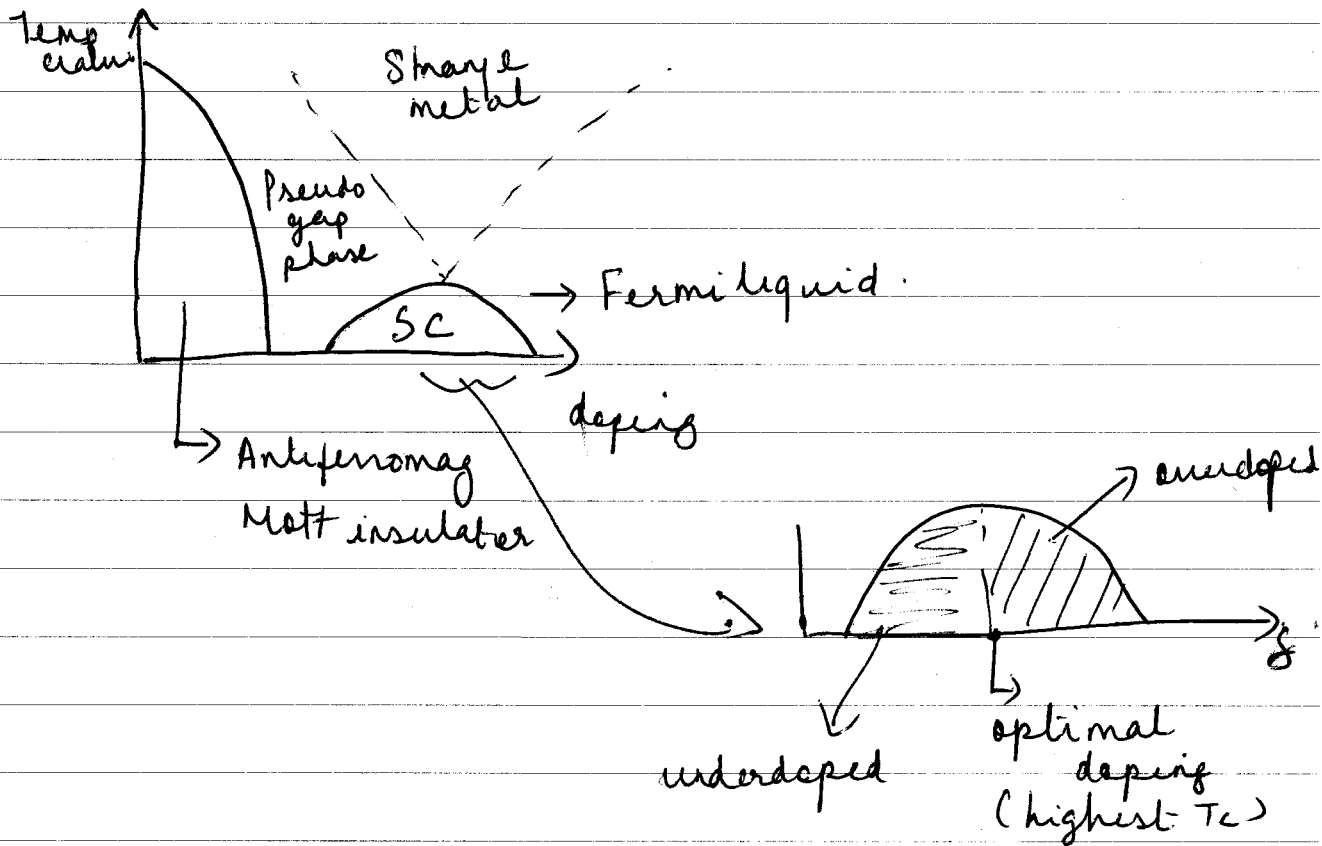 Temp
erature
Strange
metal
Pseudo
gap
phase
SC
→ Fermi liquid.
doping
Antiferromag
Mott insulator
overdoped
δ
underdoped
optimal
doping
(highest Tc)